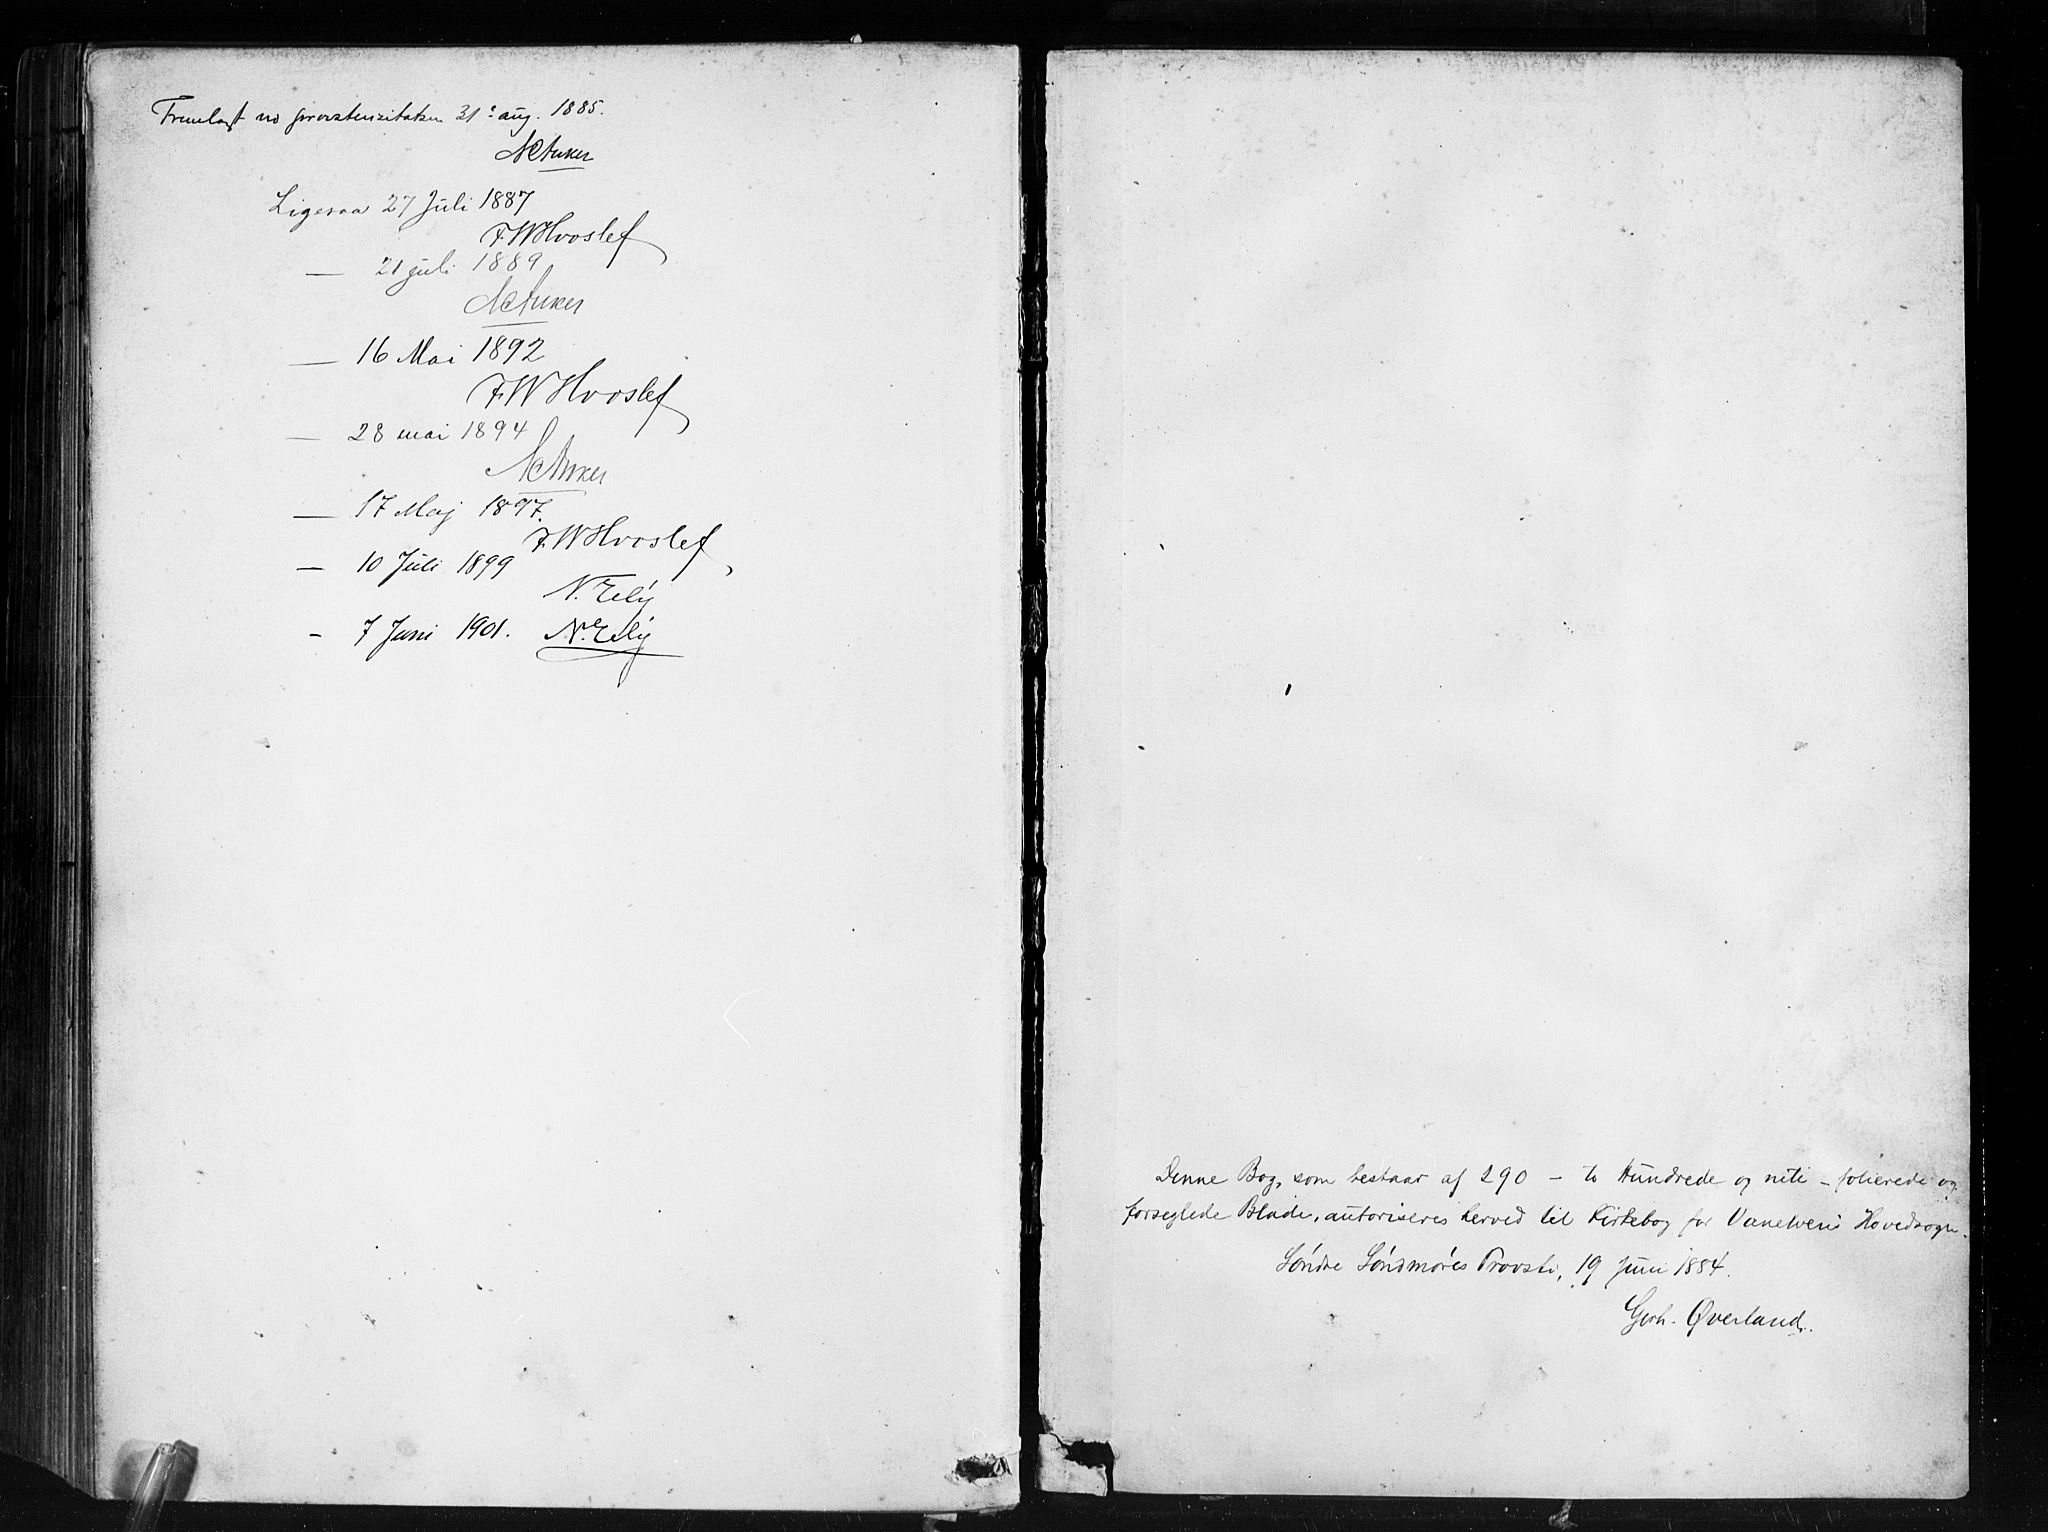 Fremlagt ved provstevisitatsen 31ᵗᵉ aug. 1885.
Ligesaa 27 Juli 1887
F. W Hvoslef
— 21 juli 1889
— 16 Mai 1892
F. W Hvoslef
— 28 mai 1894
— 17 Maj 1897.
F. W Hvoslef
— 10 Juli 1899
- 7 Juni 1901.
Denne Bog, som bestaar af 290 – to Hundrede og niti – folierede og
forseglede Blade, autoriseres herved til Kirkebog for Vanelvens Hovedsogn.
Søndre Søndmøres Provsti, 19 Juni 1884.
Gerh. Øverland.